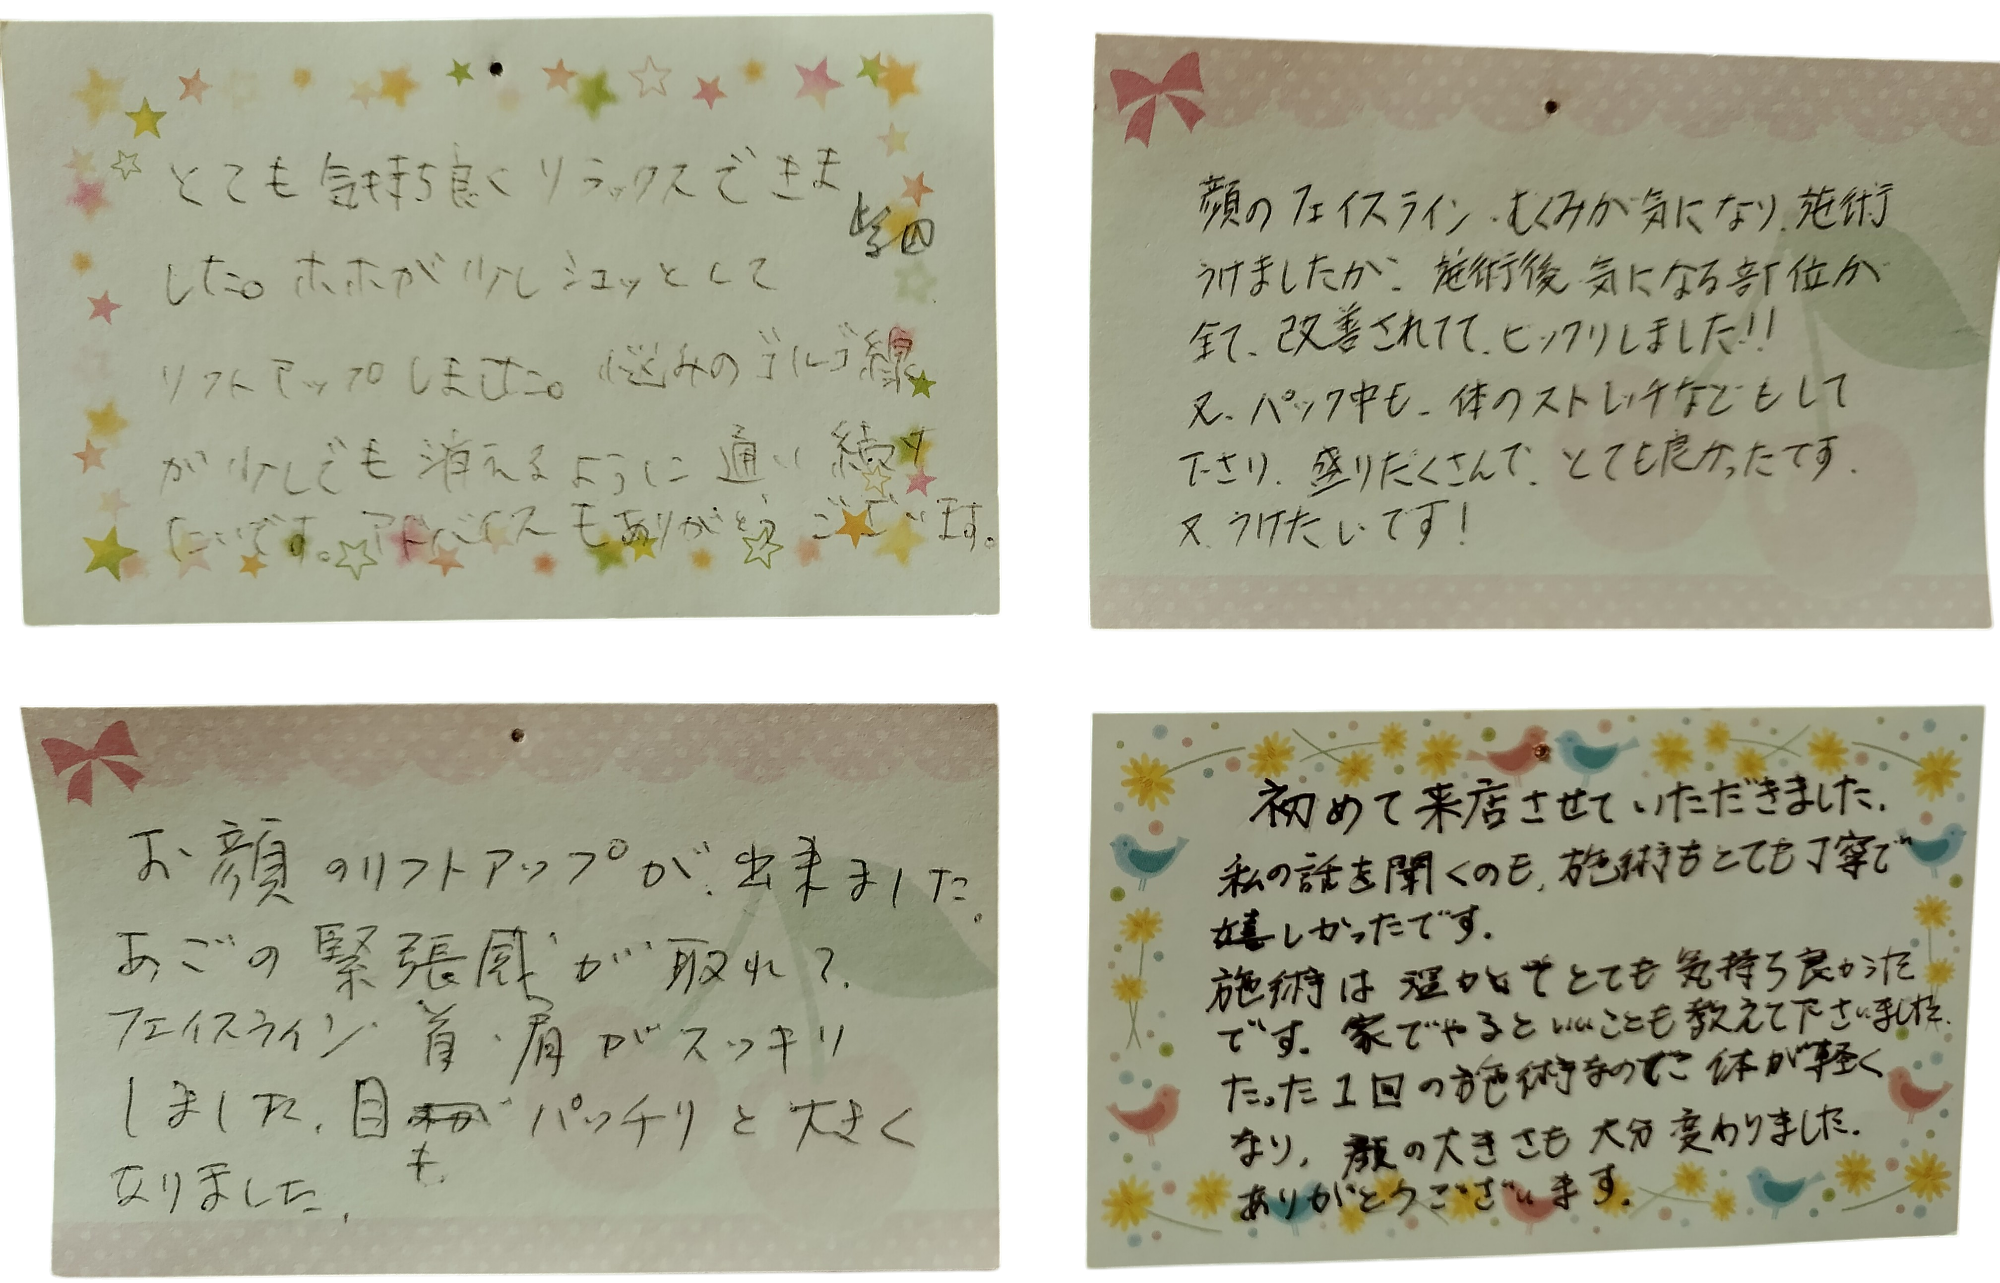 とても気持ち良くリラックスできま
柴田
した。ホホが少しシュッとして
リフトアップしました。悩みのゴルゴ線
が少しでも消えるように通い続け
たいです。アドバイスもありがとうございます。
顔のフェイスライン、むくみが気になり、施術
うけましたが、施術後気になる部位が
全て、改善されてて、ビックリしました!!
又、パック中も、体のストレッチなどもして
下さり、盛りだくさんで、とても良かったです。
又、うけたいです!
お顔のリフトアップが、出来ました。
あごの緊張感が取れて、
フェイスライン・首・肩がスッキリ
しました。目も パッチリと大きく
なりました。
初めて来店させていただきました。
私の話を聞くのも、施術もとても丁寧で
嬉しかったです。
施術は温かくてとても気持ち良かった
です。家でやるといいことも教えて下さいました。
たった1回の施術なのに体が軽く
なり、顔の大きさも大分変わりました。
ありがとうございます。